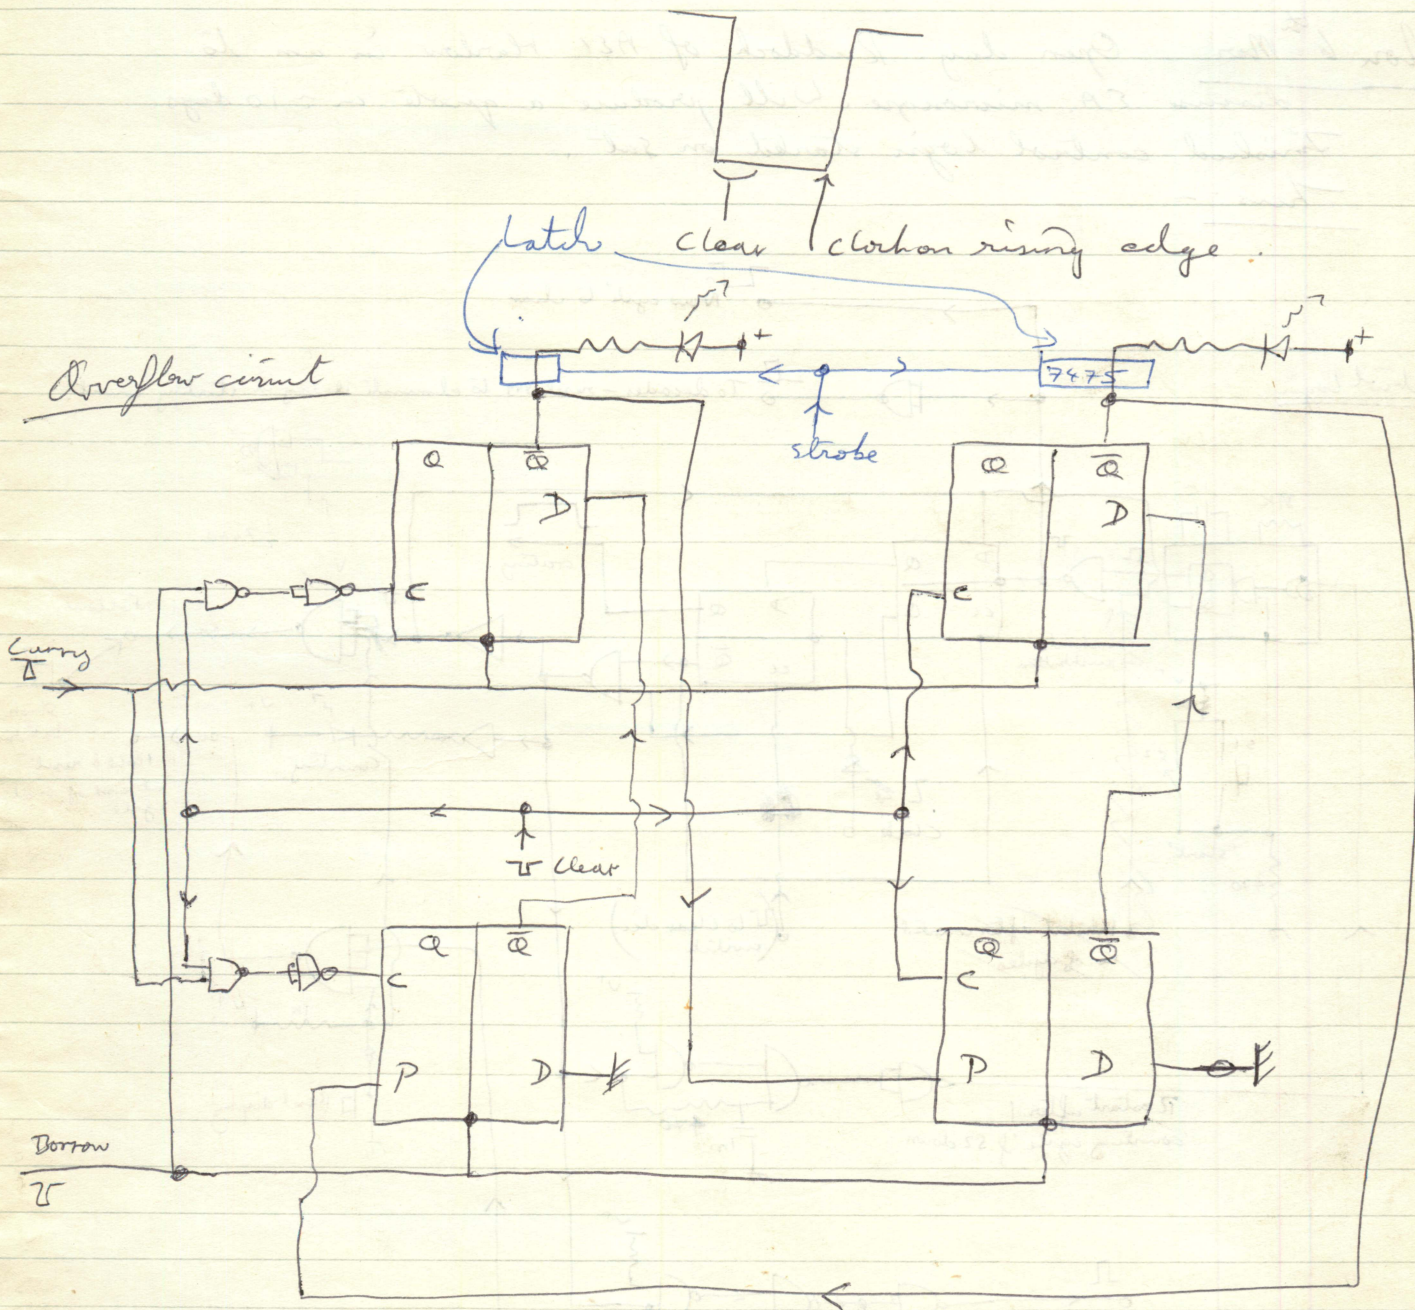 Latch Clear Clock on rising edge.
+ +
Overflow circuit
7475
strobe
Q Q̅ Q Q̅
D D
C C
Carry
Clear
Q Q̅ Q Q̅
C C
P D P D
Borrow